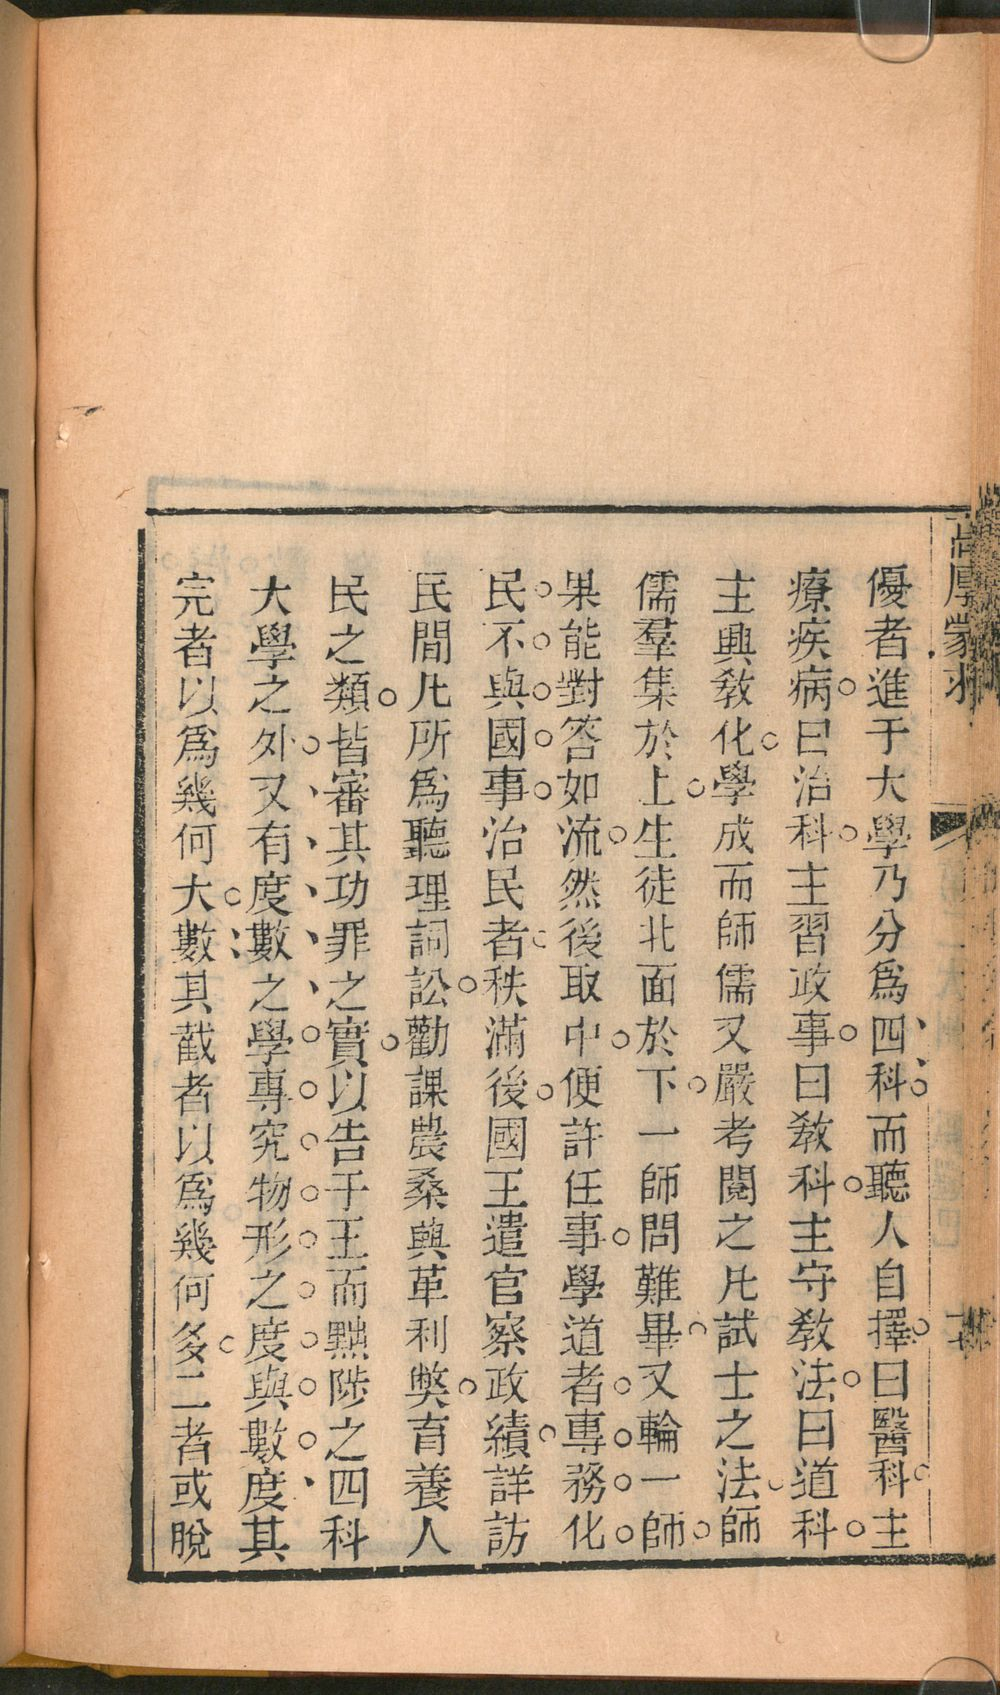 高厚蒙求
優者進于大學乃分爲四科而聽人自擇曰醫科主
療疾病曰治科主習政事曰敎科主守敎法曰道科
主興敎化學成而師儒又嚴考閱之凡試士之法師
儒羣集於上生徒北面於下一師問難畢又輪一師
果能對答如流然後取中便許任事學道者專務化
民不與國事治民者秩滿後國王遣官察政績詳訪
民間凡所爲聽理詞訟勸課農桑興革利獘育養人
民之類皆審其功罪之實以告于王而黜陟之四科
大學之外又有度數之學專究物形之度與數度其
完者以爲幾何大數其截者以爲幾何多二者或脫